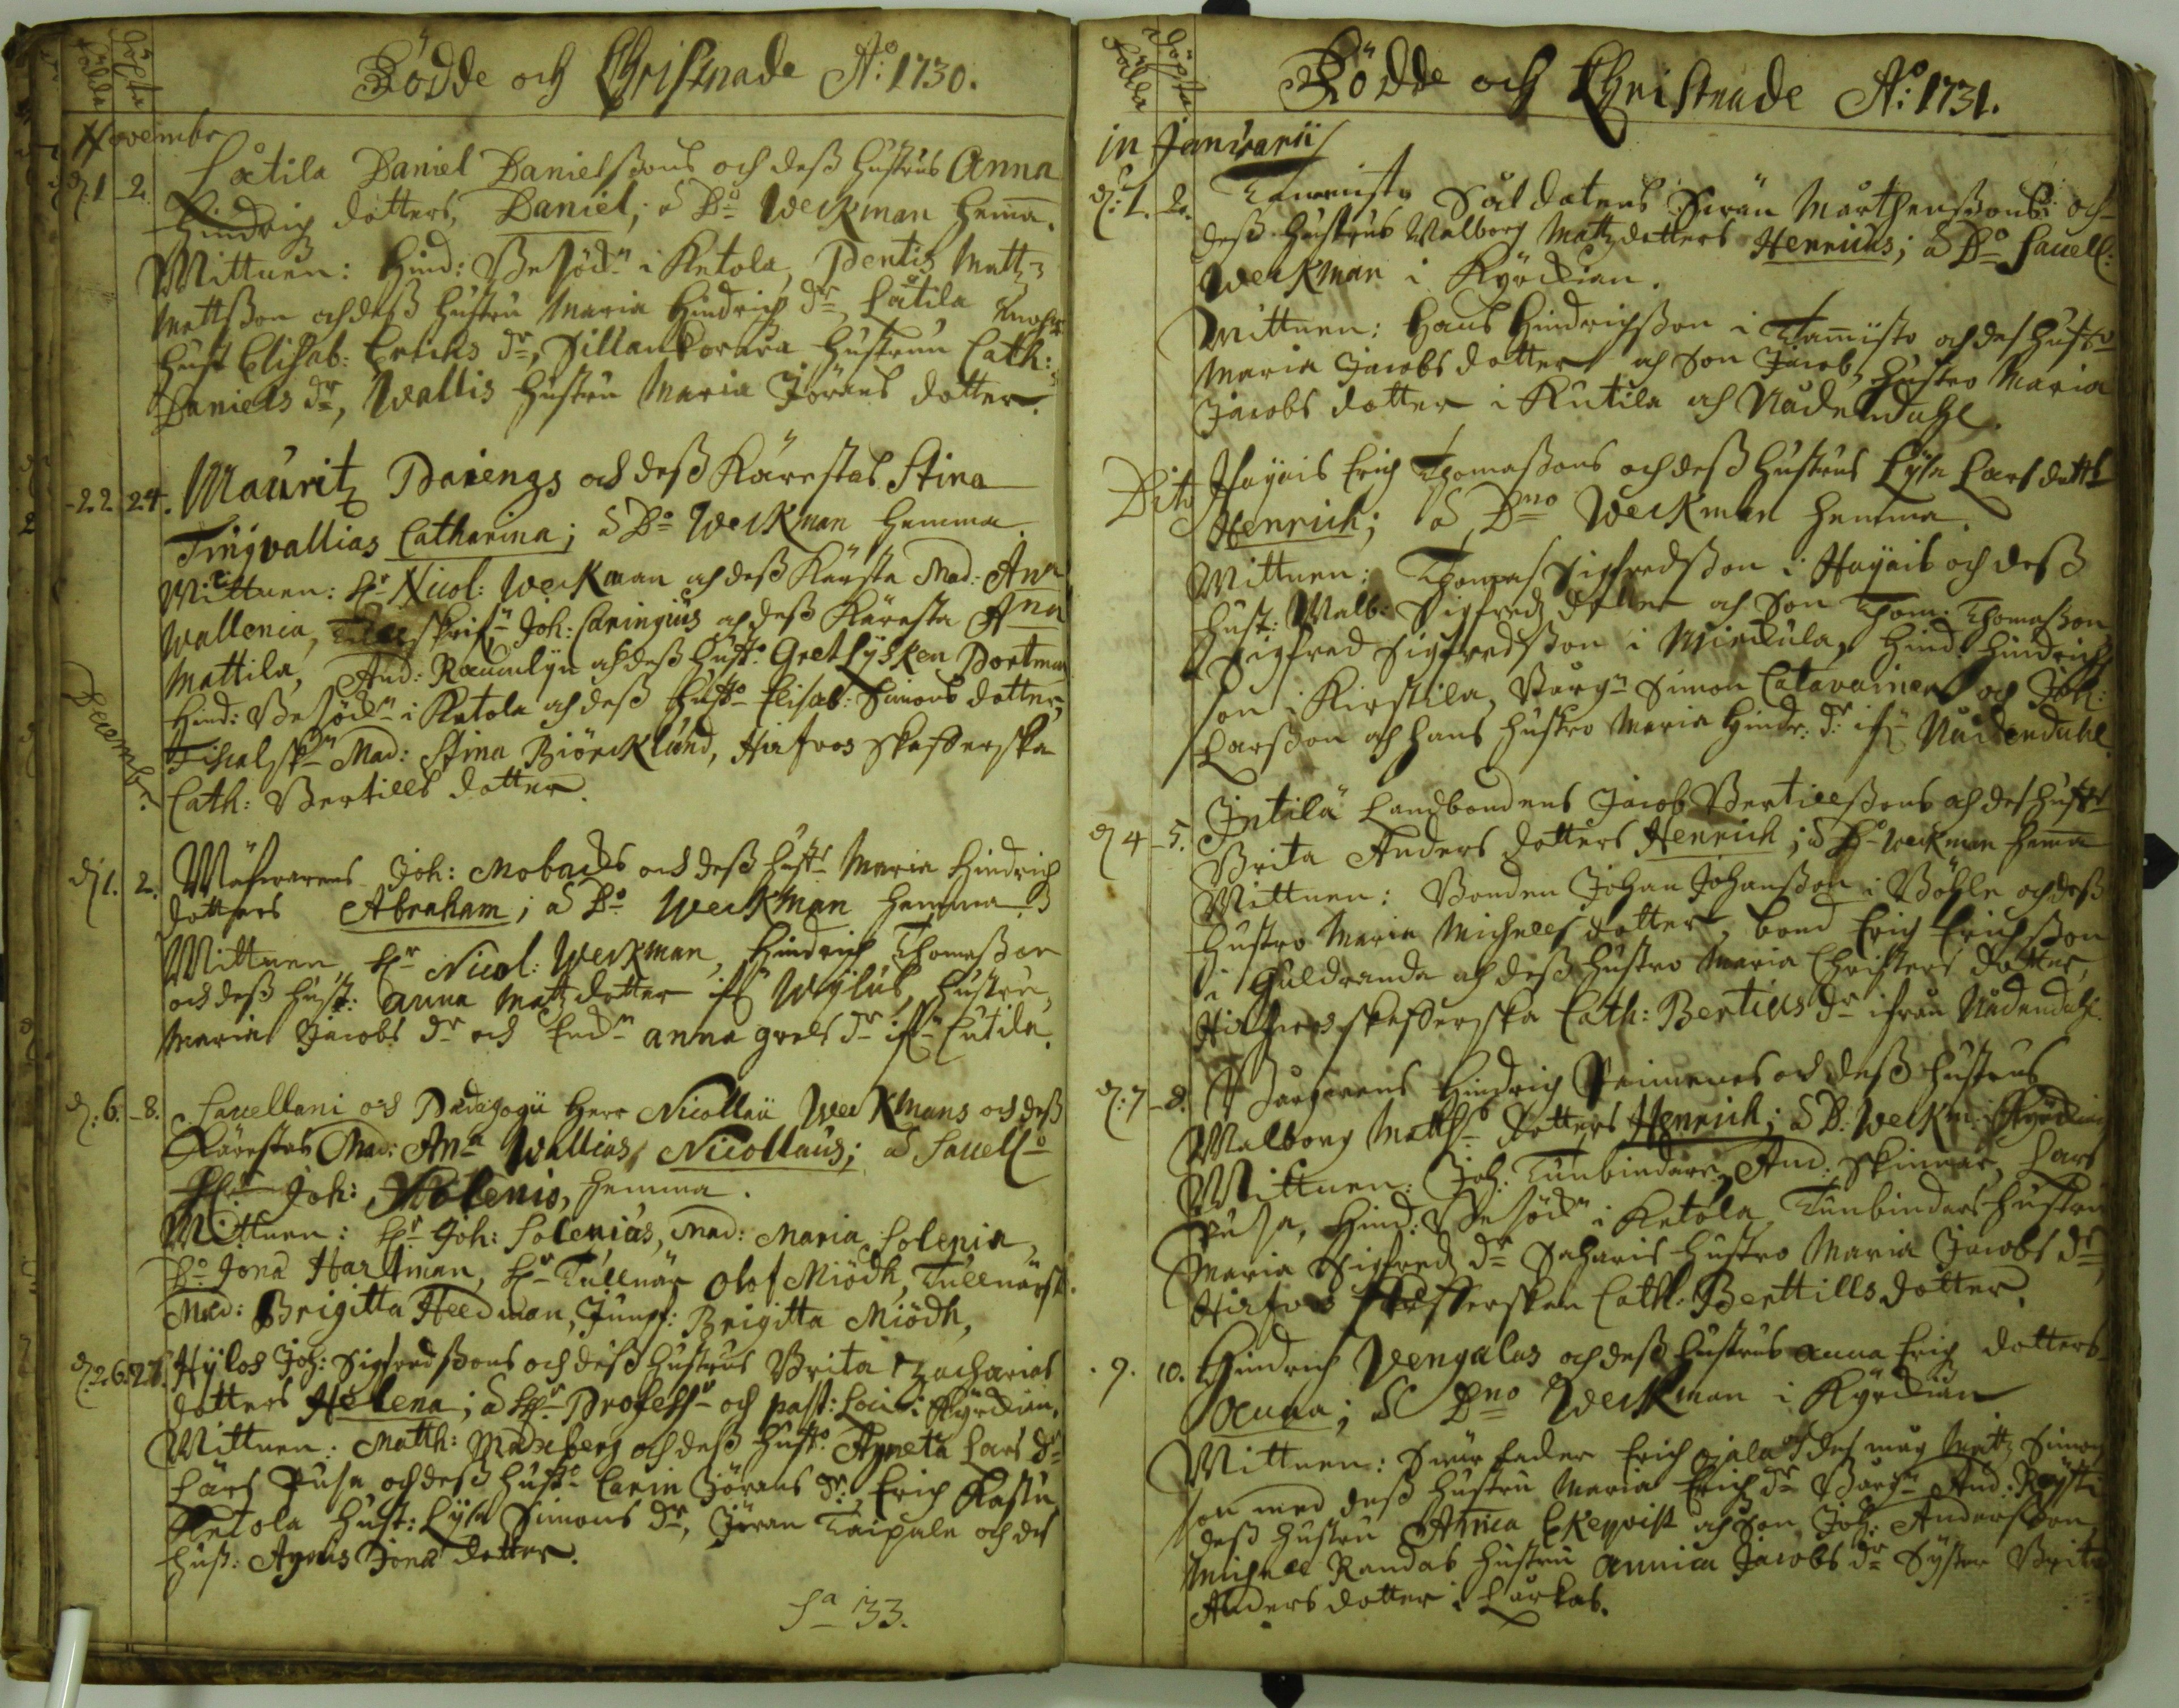 Födde Döpte
Födde och Christnade Aº: 1730.
Novembr
d. 1 2. Låtila Daniel Danielssons och dess hustrus Anna
Hindrich dotters, Daniel; a Dº Weckman hemma.
Wittnen: Hind: i Ketola, Pentis Matz
Mattsson och dess hustru Maria Hindrich dr Låtila
Hust Elisab: Erichs dr, hustrun Cath:
Daniels dr, Wallis hustru Maria Jörans dotter.
22 24. Mauritz Paiengs och dess Kärestas Stina
Tingvallias Catharina; a Dº Weckman hemma.
Wittnen: Hr Nicol: Weckman och dess Kärsta Mad: Ana
Wallenia, Joh: Caringius och dess Käresta Ana
Mattila, And: och dess Hustº Gret Lysken Portman
Hind: i Ketola och dess Hustº Elisab: Simons dotter,
Mad: Stina Biörcklund, Hirfvos
Cath: Bertills dotter.
Decembr:
d. 1. 2. Joh: Mobacks och dess Hustr Maria Hindrich
dotters Abraham; a Dº Weckman hemma
Wittnen Hr Nicol: Weckman, Hindrich Thomasson
och dess hust: Anna Matz dotter if: Wylus, hustru,
Maria Jacobs dr och anna grels dr Lutila.
d. 6. 8. Sacellani och Pædagogii Herr Nicollaii Weckmans och dess
Kärestas Mad: Ana Wallias, Nicollaus; a Sacellº
Hr Joh: Polenio, hemma.
Wittnen: Hr Joh: Polenius, Mad: Maria Polenia,
Dº Jona Hartman, Hr Tullnär Olof Miödh, Tullnärsk.
Mad: Brigitta Heedman, Jungf: Brigitta Miödh,
d. 26. 27. Hylös Joh: Sigfredssons och dess hustrus Brita Zacharias
dotters Helena; a Hr Professr och past: Loci i Kyrckian.
Wittnen: Matth: Maxberg och dess Hustº Agneta Lars dr
Lars Pusa, och dess hustº Carin Jörans dr, Erich Kassu
Ketola hust: Lysa Simons dr, Jöran Taipale och des
hust: Agnis Jons dotter.
Sa 33.
Födde Döpte
Födde och Christnade Aº: 1731.
in Januarii
d. 1. 2. Tammisto Soldatens Jöran Mårthenssons och
dess hustrus Walborg Matz dotters Henricus; a Dº Sacell:
Weckman i Kyrckian.
Wittnen: Hans Hindrichsson i Tammisto och des hustro
Maria Jacobs dotter och Son Jacob, hustro Maria
Jacobs dotter i Kutila och Nådendahl.
Dito Hayais Erich Thomassons och dess hustrus Lysa Lars dottr
Henrich; a Dno Weckman hemma.
Wittnen: Thomas Sigfredsson i Hayais och dess
hust: Walb: Sigfreds dotter och Son Thom: Thomasson,
Sigfred Sigfredsson i Mickula, Hind: Hindrich
son i Kirstila, Borgn Simon Catavainen och Joh:
Larsson och hans hustro Maria Hindr: dr if: Nådendahl
d. 4 5. Intilä Landbondens Jacob Bertillssons och des hustr
Brita Anders dotters Henrich; a Dº Weckman hemma
Wittnen: Bonden Johan Johansson i Böhle och dess
hustro Maria Michells dotter, bond Erich Erichsson
i Guldranda och dess hustro Maria Christers dotter,
Hirfvos Cath: Bertills dr ifrån Nådendahl.
d. 7 8. Borgarens Hindrich och dess hustrus
Walborg Matthº dotters Henrich; a D: Weckm: i Kyrckian
Wittnen: Joh: Tunbindare, And: Skinnar, Lars
Pusa, Hind: i Ketola, Tunbindars hustru
Maria Sigfreds dr Sacharis hustro Maria Jacobs dr,
Hirfvos Cath: Berttills dotter.
9. 10. Hindrich Vengalas och dess hustrus Anna Erich dotters
Anna; a Dno Weckman i Kyrckian
Wittnen: Swär fader Erich Ojala och des måg Matz Simons
son med dess hustru Maria Erich dr Borgn And: Röyti
dess hustru Annica Ekeqvist och Son Joh: Andersson
Michell Randas hustru Annica Jacobs dr Syster Brita
Anders dotter i Lurkas.